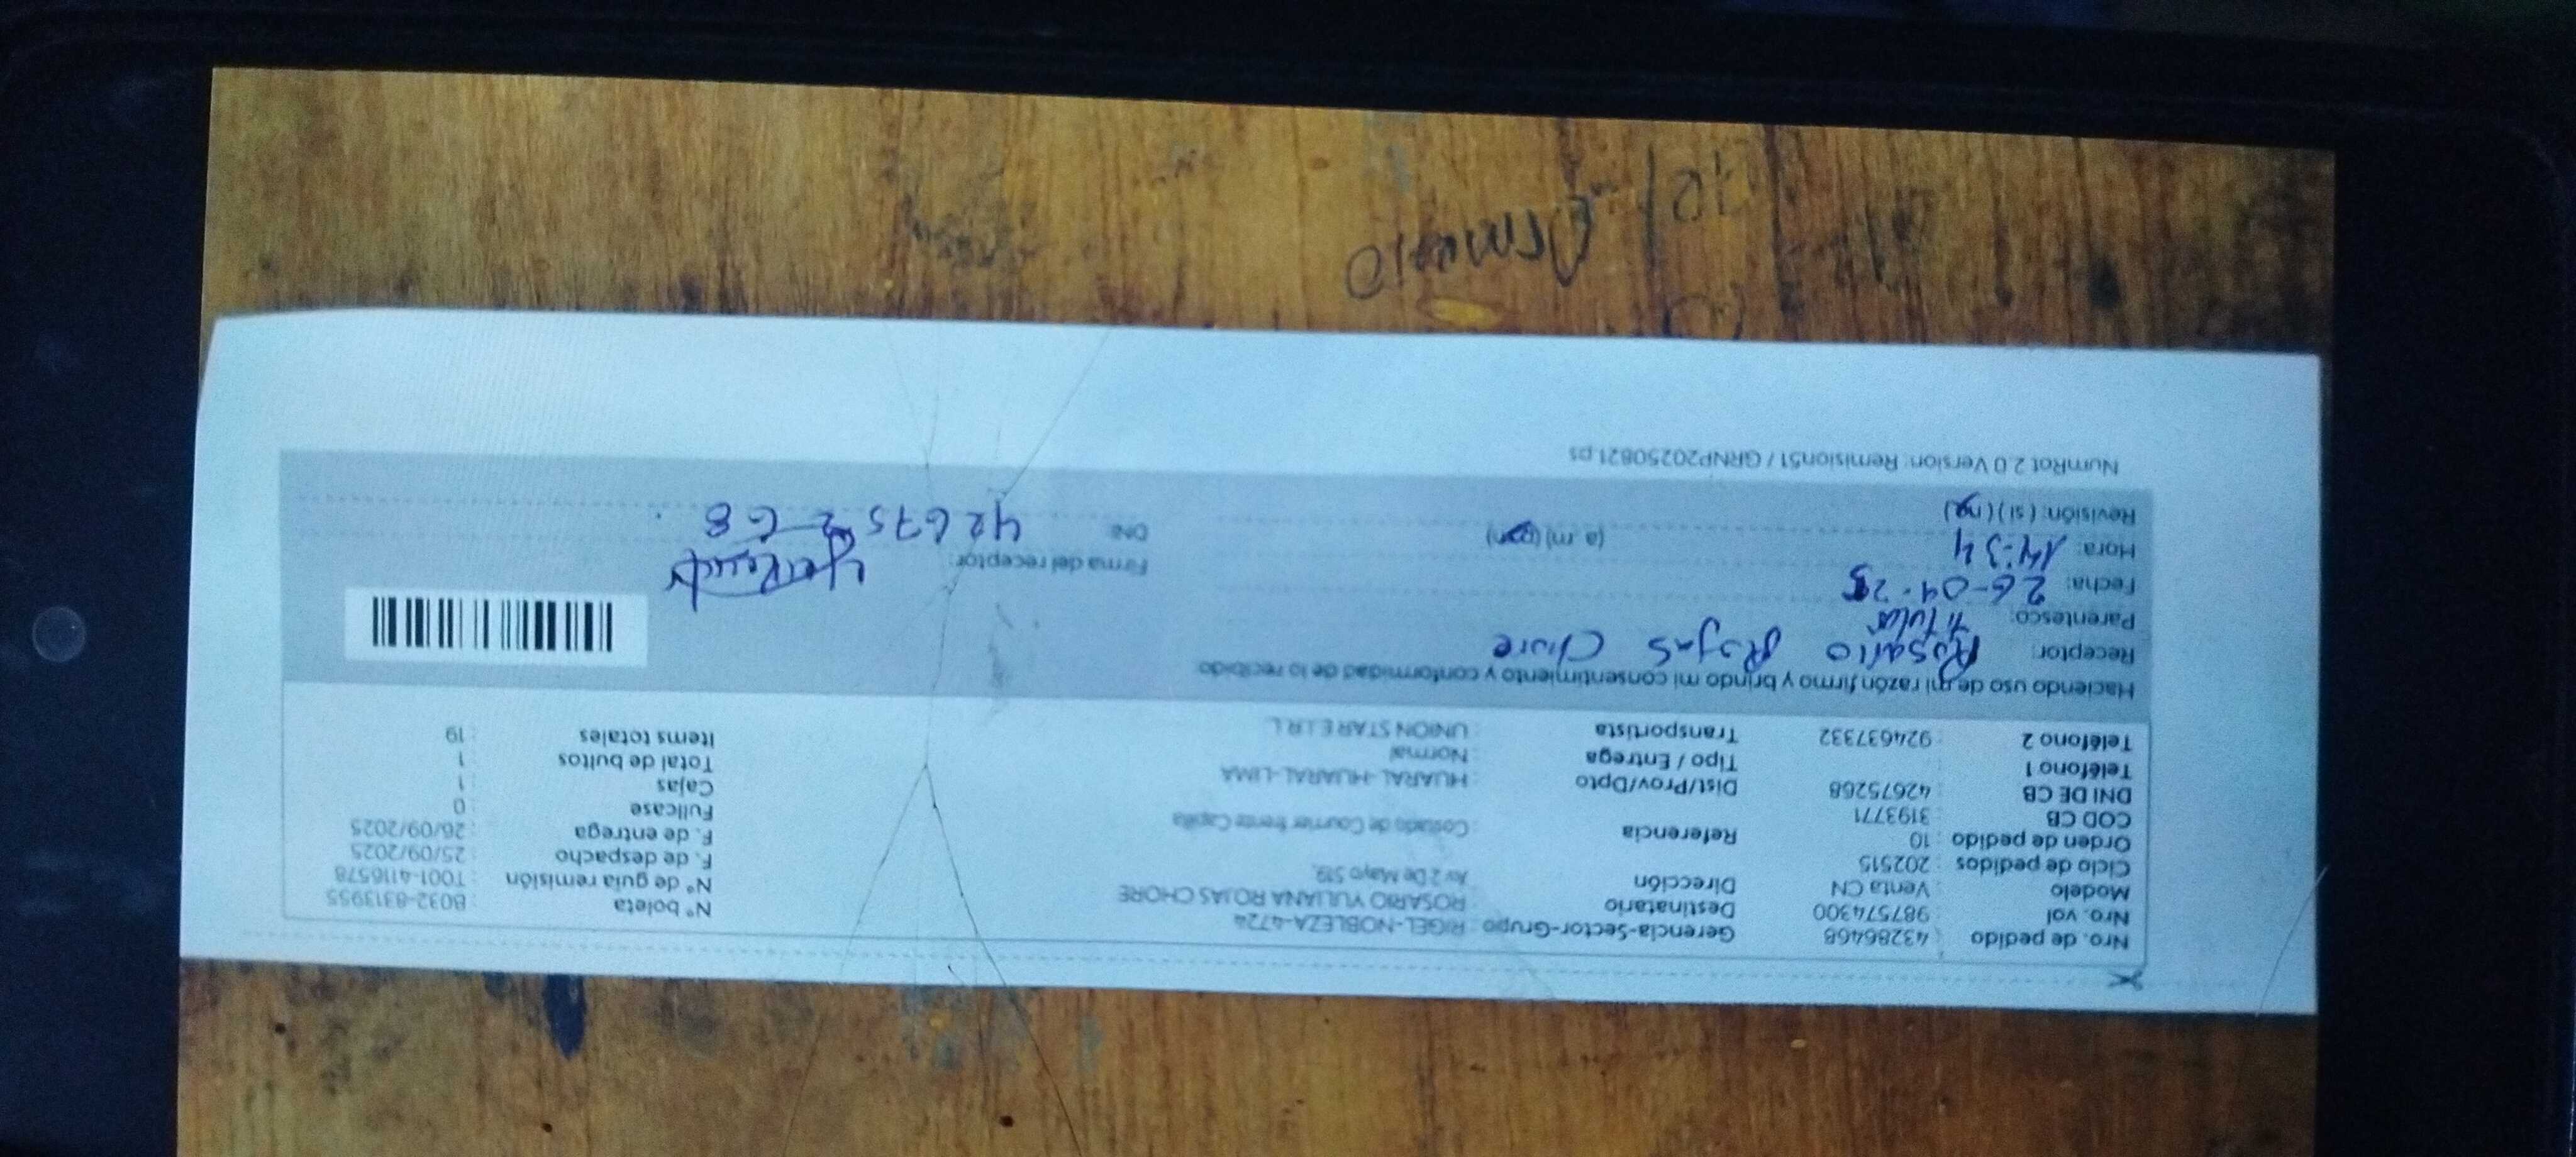 Nro. de pedido : 43286468 Gerencia-Sector-Grupo : RIGEL-NOBLEZA-4724
Nro. vol : 987574300 Destinatario : ROSARIO YULIANA ROJAS CHORE Nº boleta : B032-8313955
Modelo : Venta CN Dirección : Av 2 De Mayo 519, Nº de guia remisión : T001-4116578
Ciclo de pedidos : 202515 F. de despacho : 25/09/2025
Orden de pedido : 10 Referencia : Costado de Courrier frente Capilla F. de entrega : 26/09/2025
COD CB : 3193771 Fullcase : 0
DNI DE CB : 42675268 Dist/Prov/Dpto : HUARAL-HUARAL-LIMA Cajas : 1
Teléfono 1 : Tipo / Entrega : Normal Total de bultos : 1
Teléfono 2 : 924637332 Transportista : UNION STAR E.I.R.L. Items totales : 19
Haciendo uso de mi razón firmo y brindo mi consentimiento y conformidad de lo recibido
Receptor: Rosario Rojas Chore
Parentesco: Titular
Fecha: 26-09-25 Firma del receptor:
Hora: 14:34 (a.m) (pm) DNI: 42675268
Revisión: (si) (no)
NumRot 2.0 Version: Remision51 / GRNP20250821.ps